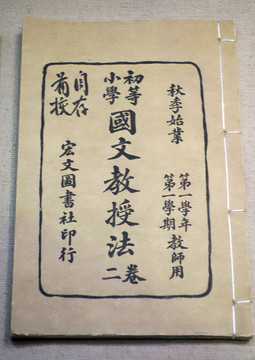 秋季始業
第一學年
第一學期
教師用
初等
小學
國文教授法
卷二
宏文圖書社印行